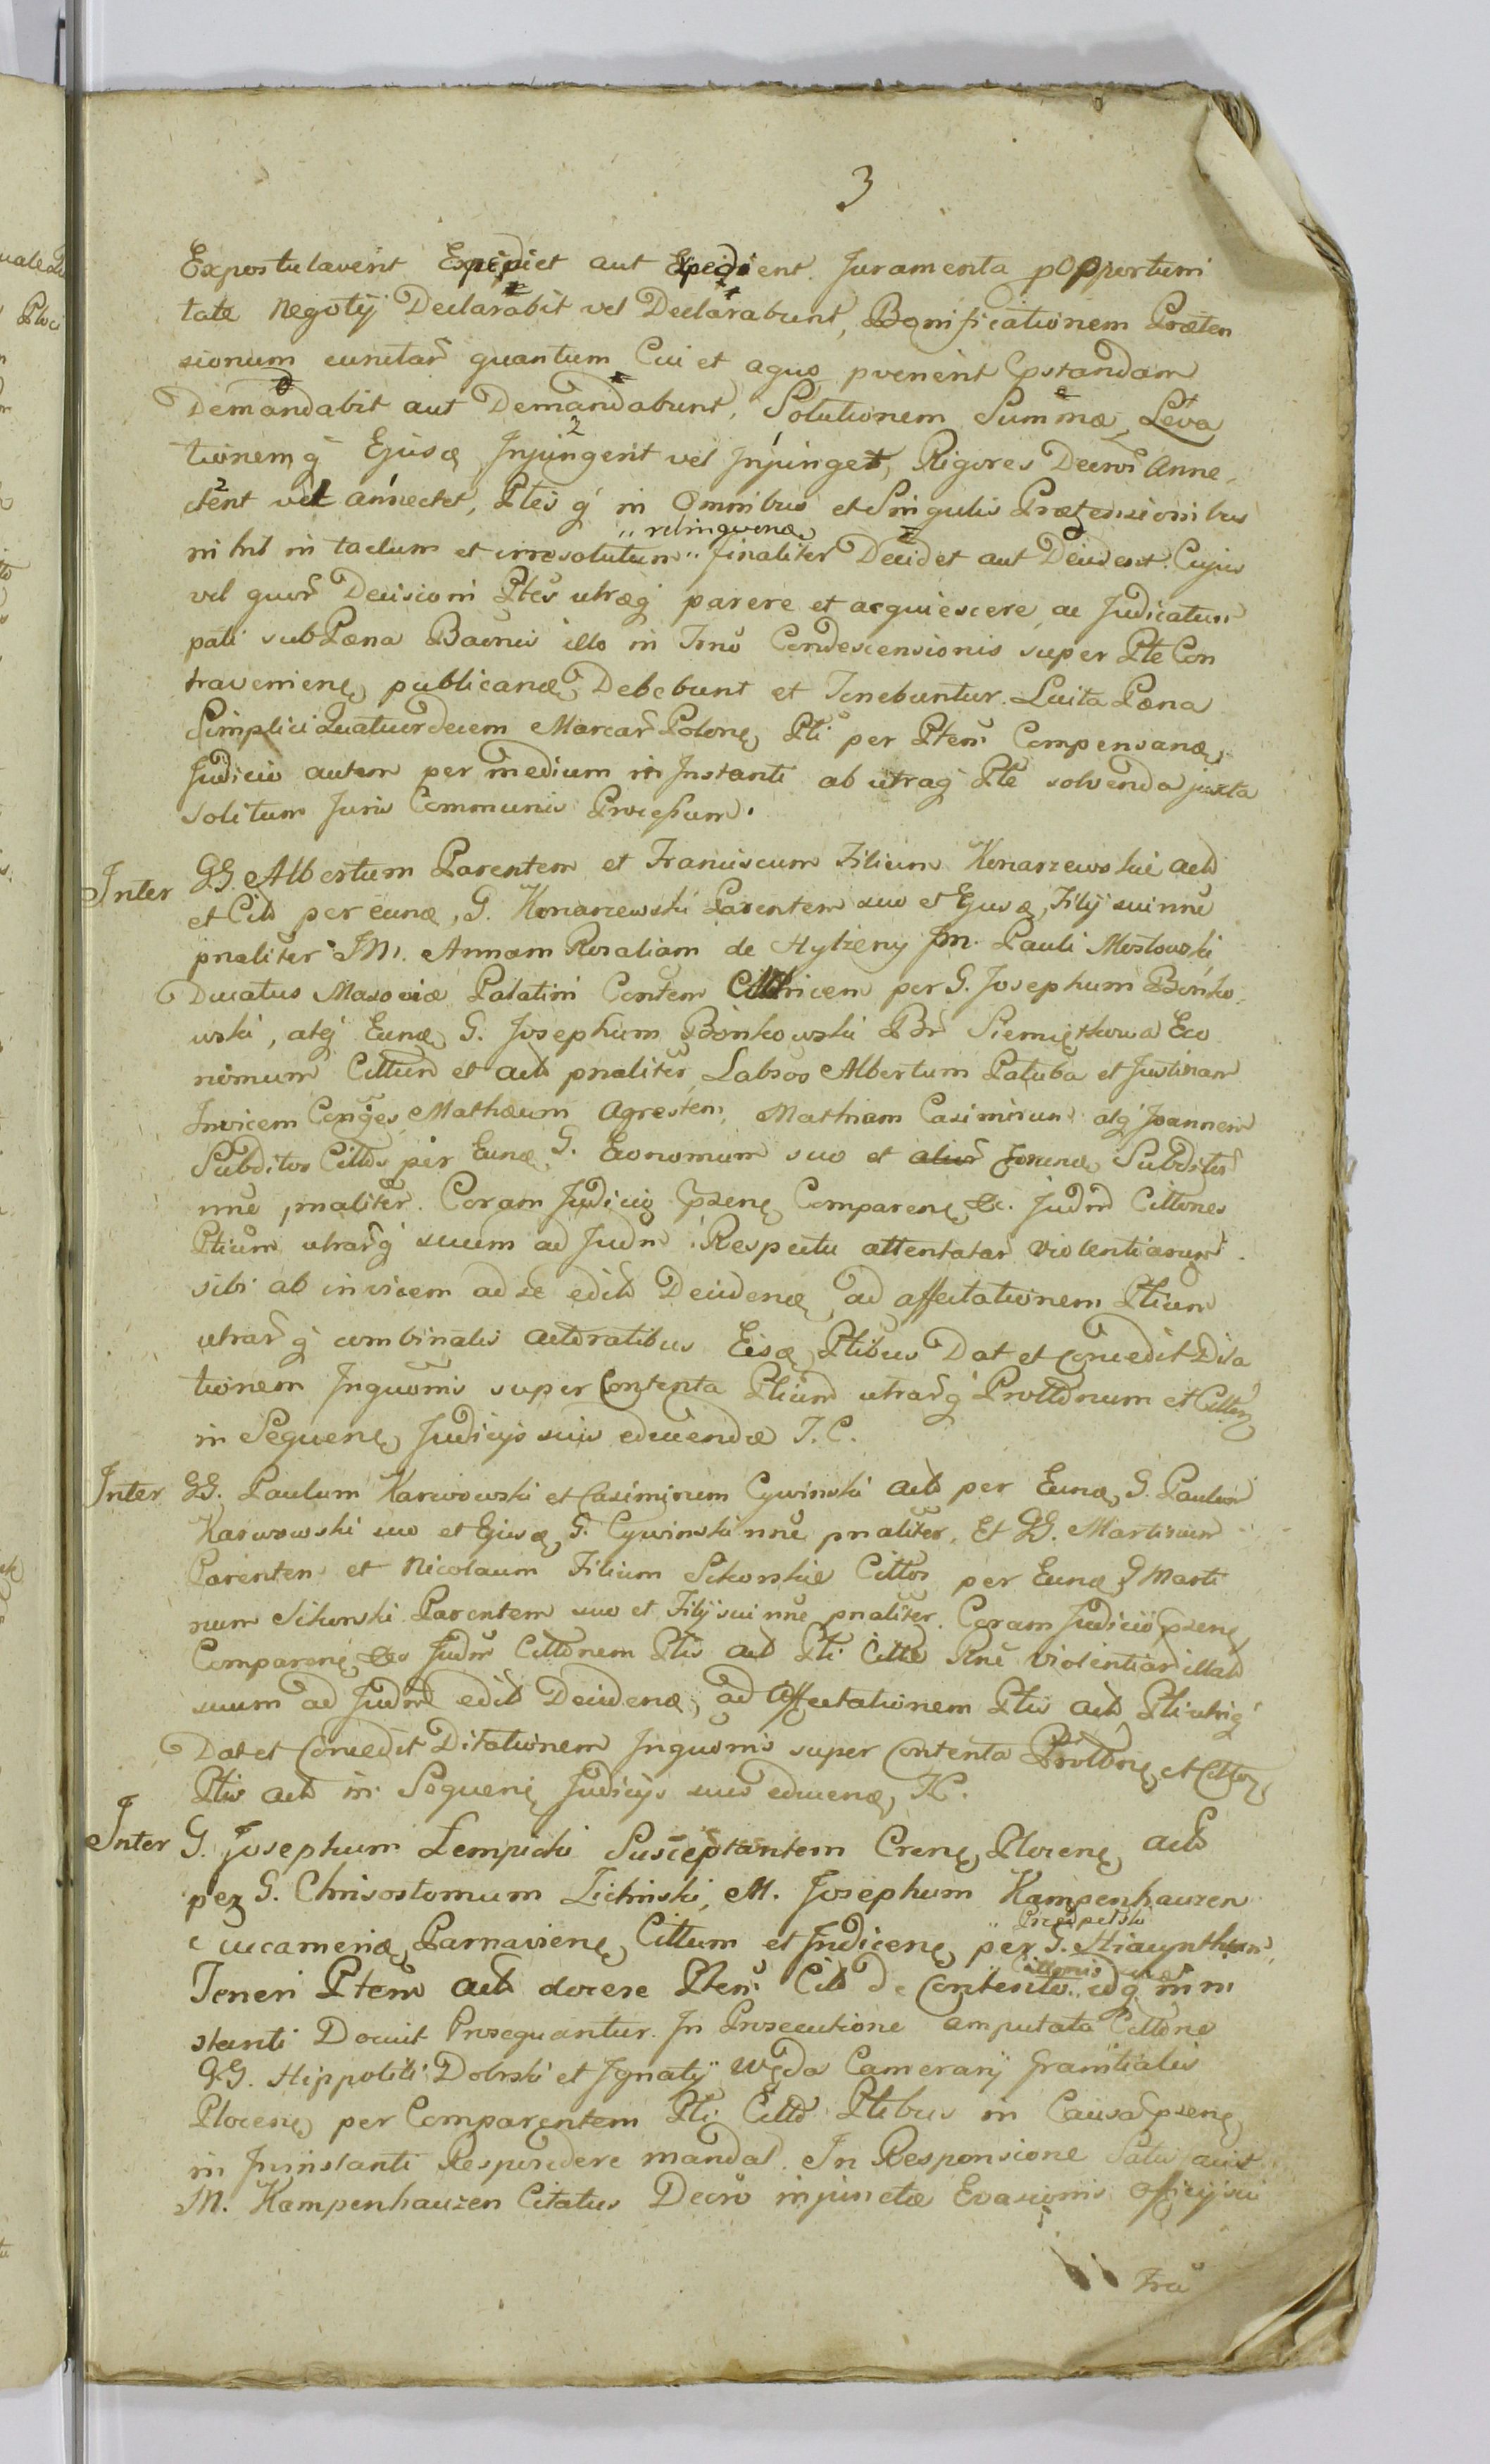 3
Expostulaverit Expediet aut Expedient. Juramenta pOpportuni
tate Negotÿ Declarabit vel Declarabunt, Bonificationem Præten
sionum cunctar̃ quantum Cui et aquo pvenerit Pstandam
Demandabit aut Demandabunt, Solutionem Summæ Leva
tionemq́ Ejusd Injungerit vel Injunget, Rigores Decrõ Anne,
ctent vel annectet, Ptesq́ in Omnibus et Singulis Prætensionibus
nihil in tactum et irresolutum ,, relinquend ,, finaliter Decidet aut Decident. Cujus
vel quor̃ Decisioni Ptes utræq́ parere et acquiescere ac Judicatum
pati sub Pæna Bannis illo in Tmo Condescensionis super Pte Con
travenien publicand, Debebunt et Tenebuntur. Luita Pæna
Simplici Quatuordecem Marcar̃ Polon, Pti per Ptem Compensand,
Judicio autem per medium in Instanti ab utraq́ Pte solvenda juxta
solitum Juris Communis Processum.
Inter GG. Albertum Parentem et Franciscum Filium Konarzewskie actõ
et Citõ per eund, G. Konarzewski Parentem suo et Ejusd, Filÿ sui nñe
pnaliter IM. Annam Rosaliam de Hylzeny Jm. Pauli Mostowski
Ducatus Masoviæ Palatini Contem Citricem per G. Josephum Bonko,
wski, atq́ Eund, G. Josephum Bonkowski Bñ Siemiętkowa Eco
nomum Cittum et actõ pnaliter, Labsos Albertum Patuba et Justinam
Invicem Conjges, Mathæum Agrestem, Mathiam Casimirum atq́ Joannem
Subditos Cittos per Eund, G. Economum suo et Eorund, Subditor̃
nñe pnaliter. Coram Judicio Psen, Comparen, &c. Judm̃ Cittones
Ptium utrarq́ suum ad Judm̃ Respectu attentatar̃ violentiarum
sibi ab invicem ad se editõ Decidend, ad affectationem Ptium
utrarq́ combinatis actoratibus Eisd, Ptibus Dat et Concedit Dila
tionem Inquõnis super Contenta Ptium utrarq́ Prottõnum et Citton
in Sequen, Judicÿs suis educendæ T. C.
Inter GG. Paulum Karwowski et Casimirum Cywinski actõ per Eund, G. Paulum
Karwowski suo et Ejusd, G. Cywinski nñe pnaliter, Et GG. Martinum
Parentem et Nicolaum Filium Sikorskie Cittos per Eund G Marti
num Sikorski Parentem suo et Filÿ sui nñe pnaliter. Coram Judicio Psen,
Comparen, &c Judm̃ Cittõnem Ptis actõ Pti Cittæ Rñe violentiar̃ illatõ
suum ad Judm̃ editõ Decidend, ad Affectationem Ptis actõ Pti utriq́
Dat et Concedit Dilationem Inquõnis super Contenta Prottõn, et Citton,
Ptis actõ in Sequen, Judicÿs suis educend, TC.
Inter G. Josephum Łempicki Susceptantem Cren, Plocen, actõ
per G. Chrisostomum Zichinski, M. Josephum Kampenhauzen
Succamerid, Parnavien, Cittum et Indicen, per G. Hiacynthum Przedpełski
Teneri Ptem actõ docere Ptem Citõ de Contento Cittonis suæ idq́ in in
stanti Docuit Prosequantur. In Prosecutione amputata Cittõne
GG. Hippoliti Dobrski et Ignatÿ Węda Camerarÿ Granitialis
Plocen, per Comparentem Pti Cittõ Ptibus in Causa Psen,
in Ininstanti Respondere mandat. In Responsione Satis faciat
M. Kampenhauzen Citatus Decrõ injunctæ Evasionis Officÿ sui
Tru